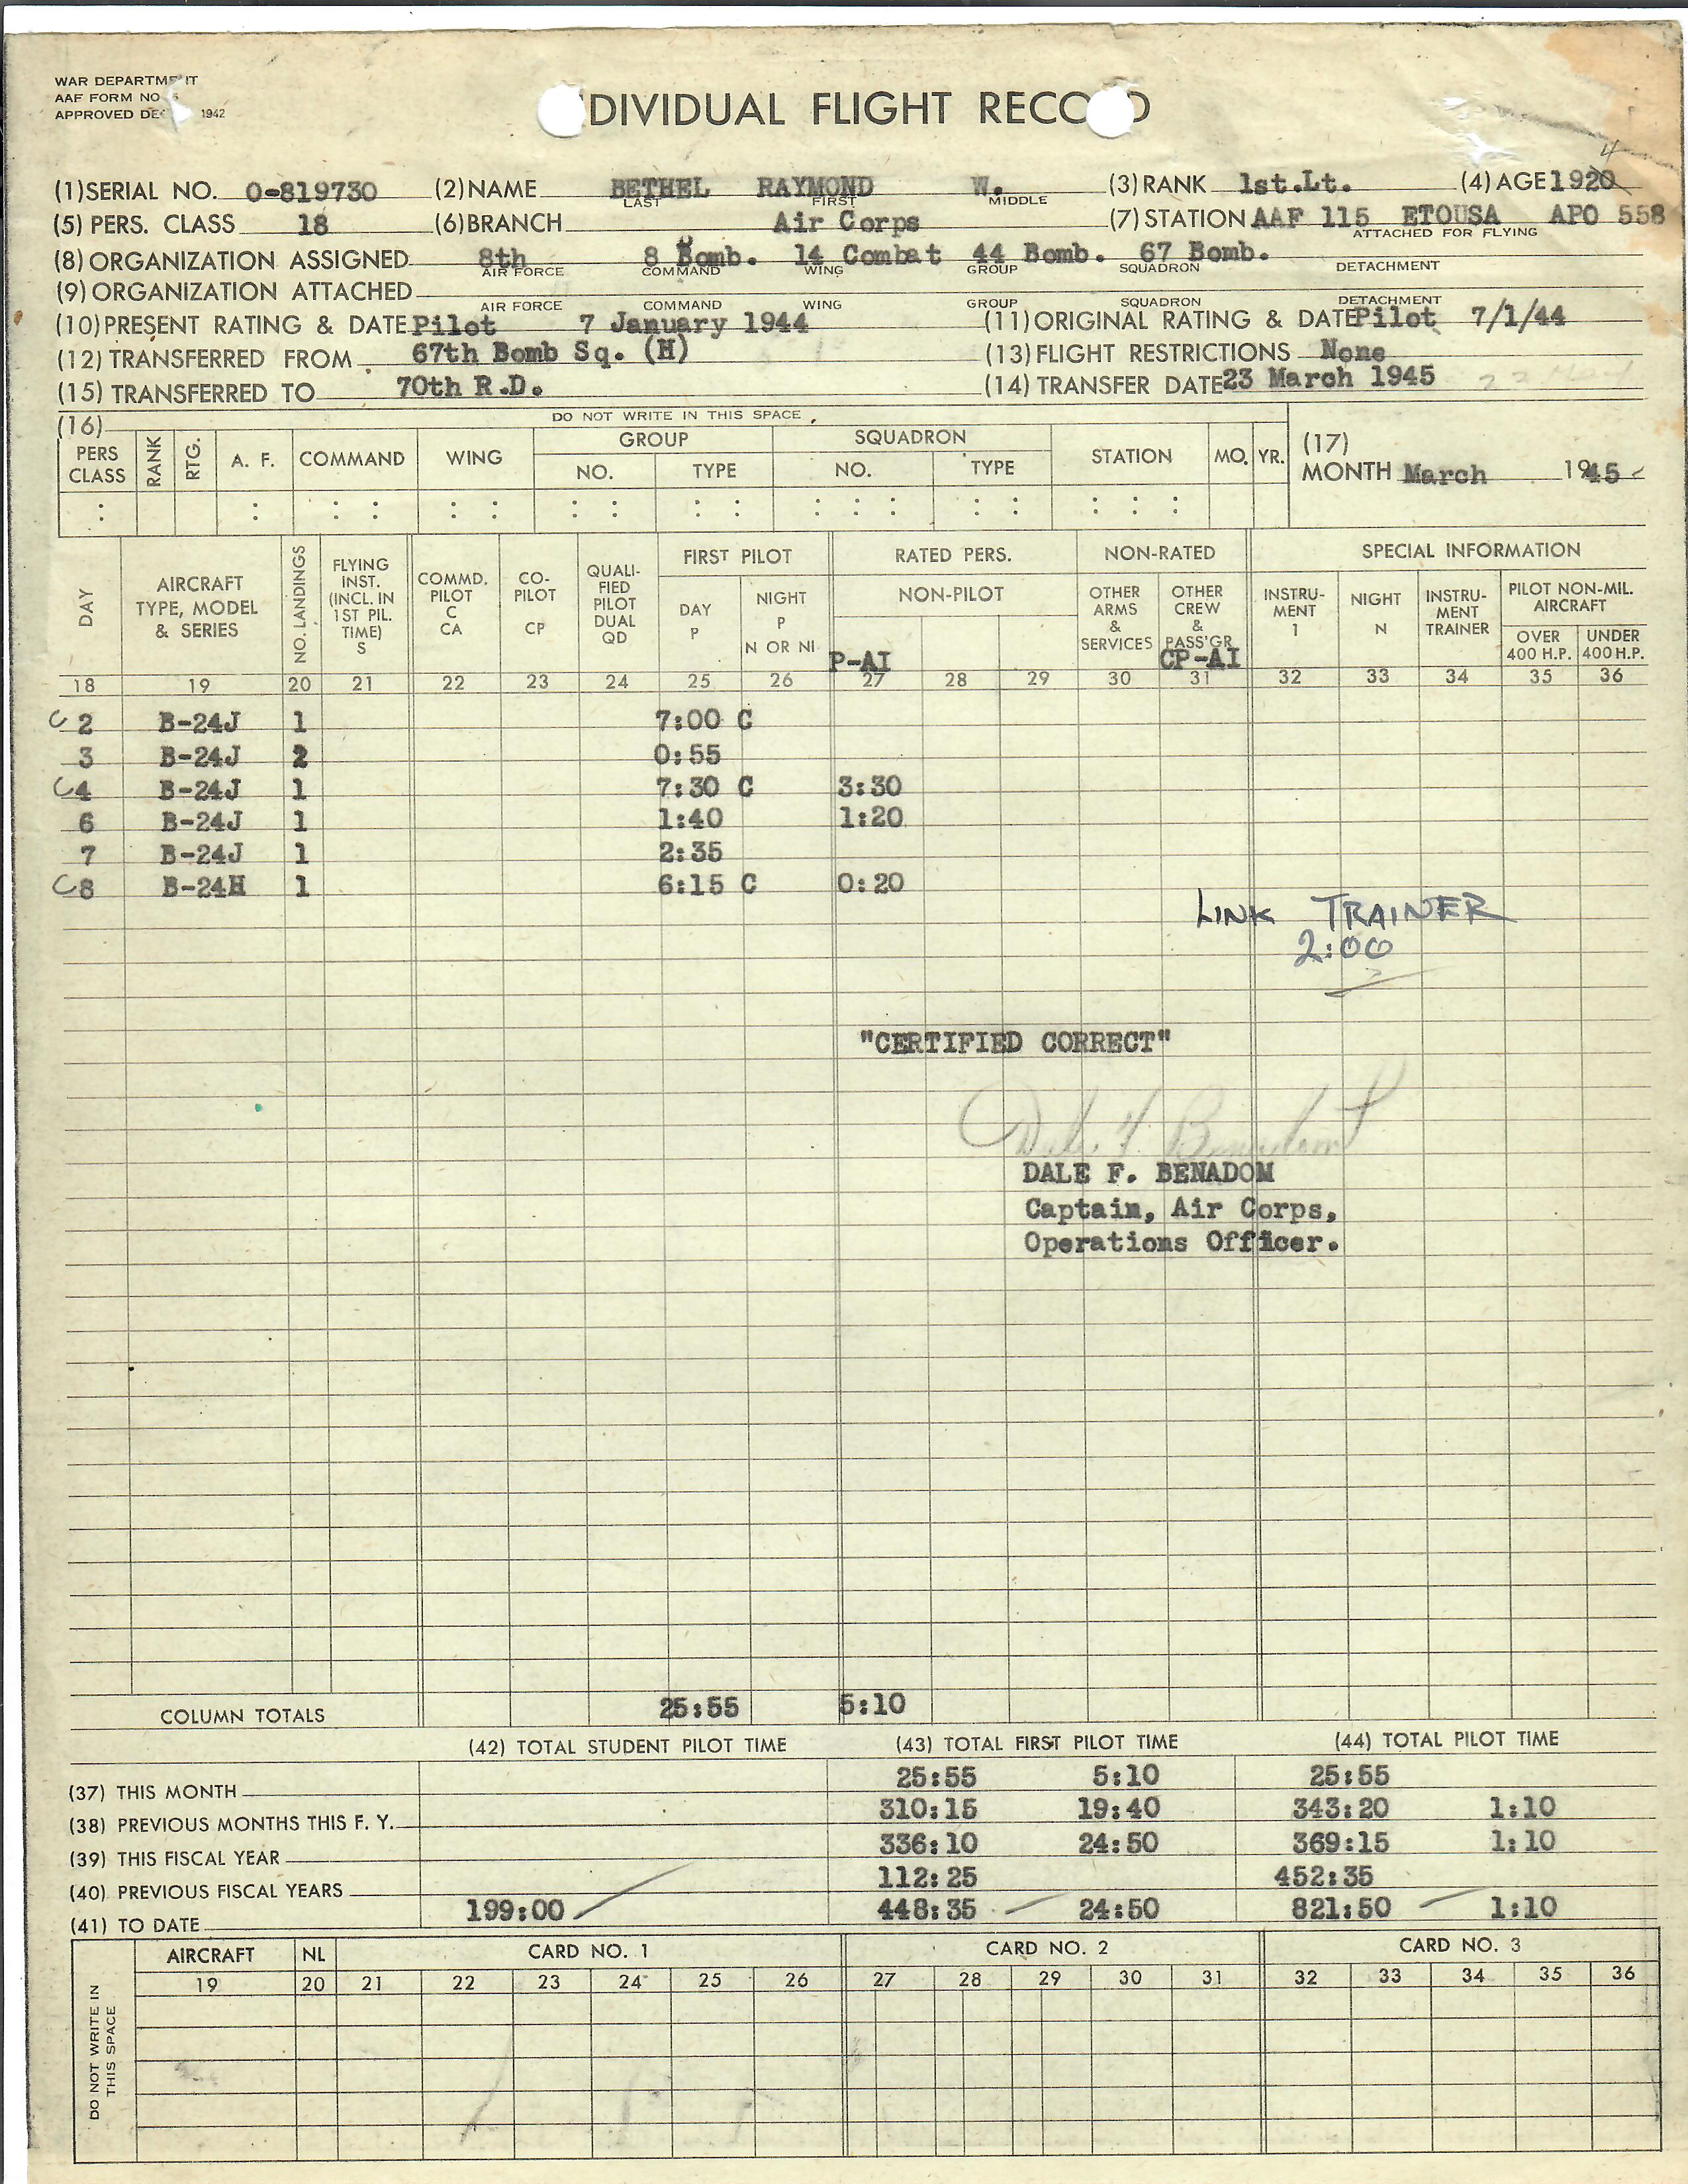 WAR DEPARTMENT
AAF FORM NO.
APPROVED DEC 1942
DIVIDUAL FLIGHT RECO D
4
(1) SERIAL NO. 0-819730 (2) NAME BETHEL RAYMOND W. (3) RANK 1st.Lt. (4) AGE 1920
LAST FIRST MIDDLE
(5) PERS. CLASS 18 (6) BRANCH Air Corps (7) STATION AAF 115 ETOUSA APO 558
ATTACHED FOR FLYING
(8) ORGANIZATION ASSIGNED 8th 8 Bomb. 14 Combat 44 Bomb. 67 Bomb.
AIR FORCE COMMAND WING GROUP SQUADRON DETACHMENT
(9) ORGANIZATION ATTACHED
AIR FORCE COMMAND WING GROUP SQUADRON DETACHMENT
(10) PRESENT RATING & DATE Pilot 7 January 1944 (11) ORIGINAL RATING & DATE Pilot 7/1/44
(12) TRANSFERRED FROM 67th Bomb Sq. (H) (13) FLIGHT RESTRICTIONS None
(15) TRANSFERRED TO 70th R.D. (14) TRANSFER DATE 23 March 1945
(16) DO NOT WRITE IN THIS SPACE
PERS CLASS RANK RTG. A. F. COMMAND WING GROUP NO. TYPE SQUADRON NO. TYPE STATION MO. YR.
(17) MONTH March 1945
DAY AIRCRAFT TYPE, MODEL & SERIES NO. LANDINGS FLYING INST. (INCL. IN 1ST PIL. TIME) S COMMD. PILOT C CA CO-PILOT CP QUALI-FIED PILOT DUAL QD FIRST PILOT DAY P NIGHT P N OR NI RATED PERS. NON-PILOT P-AI NON-RATED OTHER ARMS & SERVICES OTHER CREW & PASS'GR CP-AI SPECIAL INFORMATION INSTRU-MENT I NIGHT N INSTRU-MENT TRAINER PILOT NON-MIL. AIRCRAFT OVER 400 H.P. UNDER 400 H.P.
18 19 20 21 22 23 24 25 26 27 28 29 30 31 32 33 34 35 36
C 2 B-24J 1 7:00 C
3 B-24J 2 0:55
C 4 B-24J 1 7:30 C 3:30
6 B-24J 1 1:40 1:20
7 B-24J 1 2:35
C 8 B-24H 1 6:15 C 0:20
LINK TRAINER
2:00
"CERTIFIED CORRECT"
Dale F. Benadom
DALE F. BENADOM
Captain, Air Corps,
Operations Officer.
COLUMN TOTALS 25:55 5:10
(42) TOTAL STUDENT PILOT TIME (43) TOTAL FIRST PILOT TIME (44) TOTAL PILOT TIME
(37) THIS MONTH 25:55 5:10 25:55
(38) PREVIOUS MONTHS THIS F. Y. 310:15 19:40 343:20 1:10
(39) THIS FISCAL YEAR 336:10 24:50 369:15 1:10
(40) PREVIOUS FISCAL YEARS 112:25 452:35
(41) TO DATE 199:00 448:35 24:50 821:50 1:10
DO NOT WRITE IN THIS SPACE
AIRCRAFT NL CARD NO. 1 CARD NO. 2 CARD NO. 3
19 20 21 22 23 24 25 26 27 28 29 30 31 32 33 34 35 36